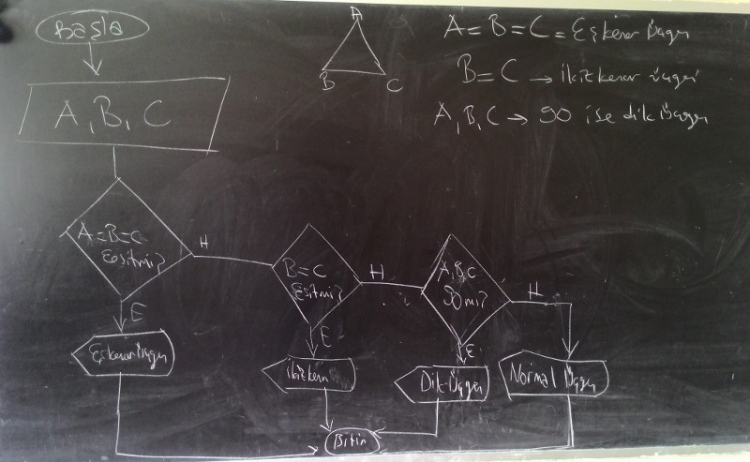 Başla
A
B
C
A=B=C=Eşkenar üçgen
B=C → ikizkenar üçgen
A,B,C → 90 ise dik üçgen
A, B, C
A=B=C
Eşitmi?
H
B=C
Eşitmi?
H
A,B,C
90 mı?
H
E
E
E
Eşkenar üçgen
ikizkenar
Dik üçgen
Normal üçgen
Bitir